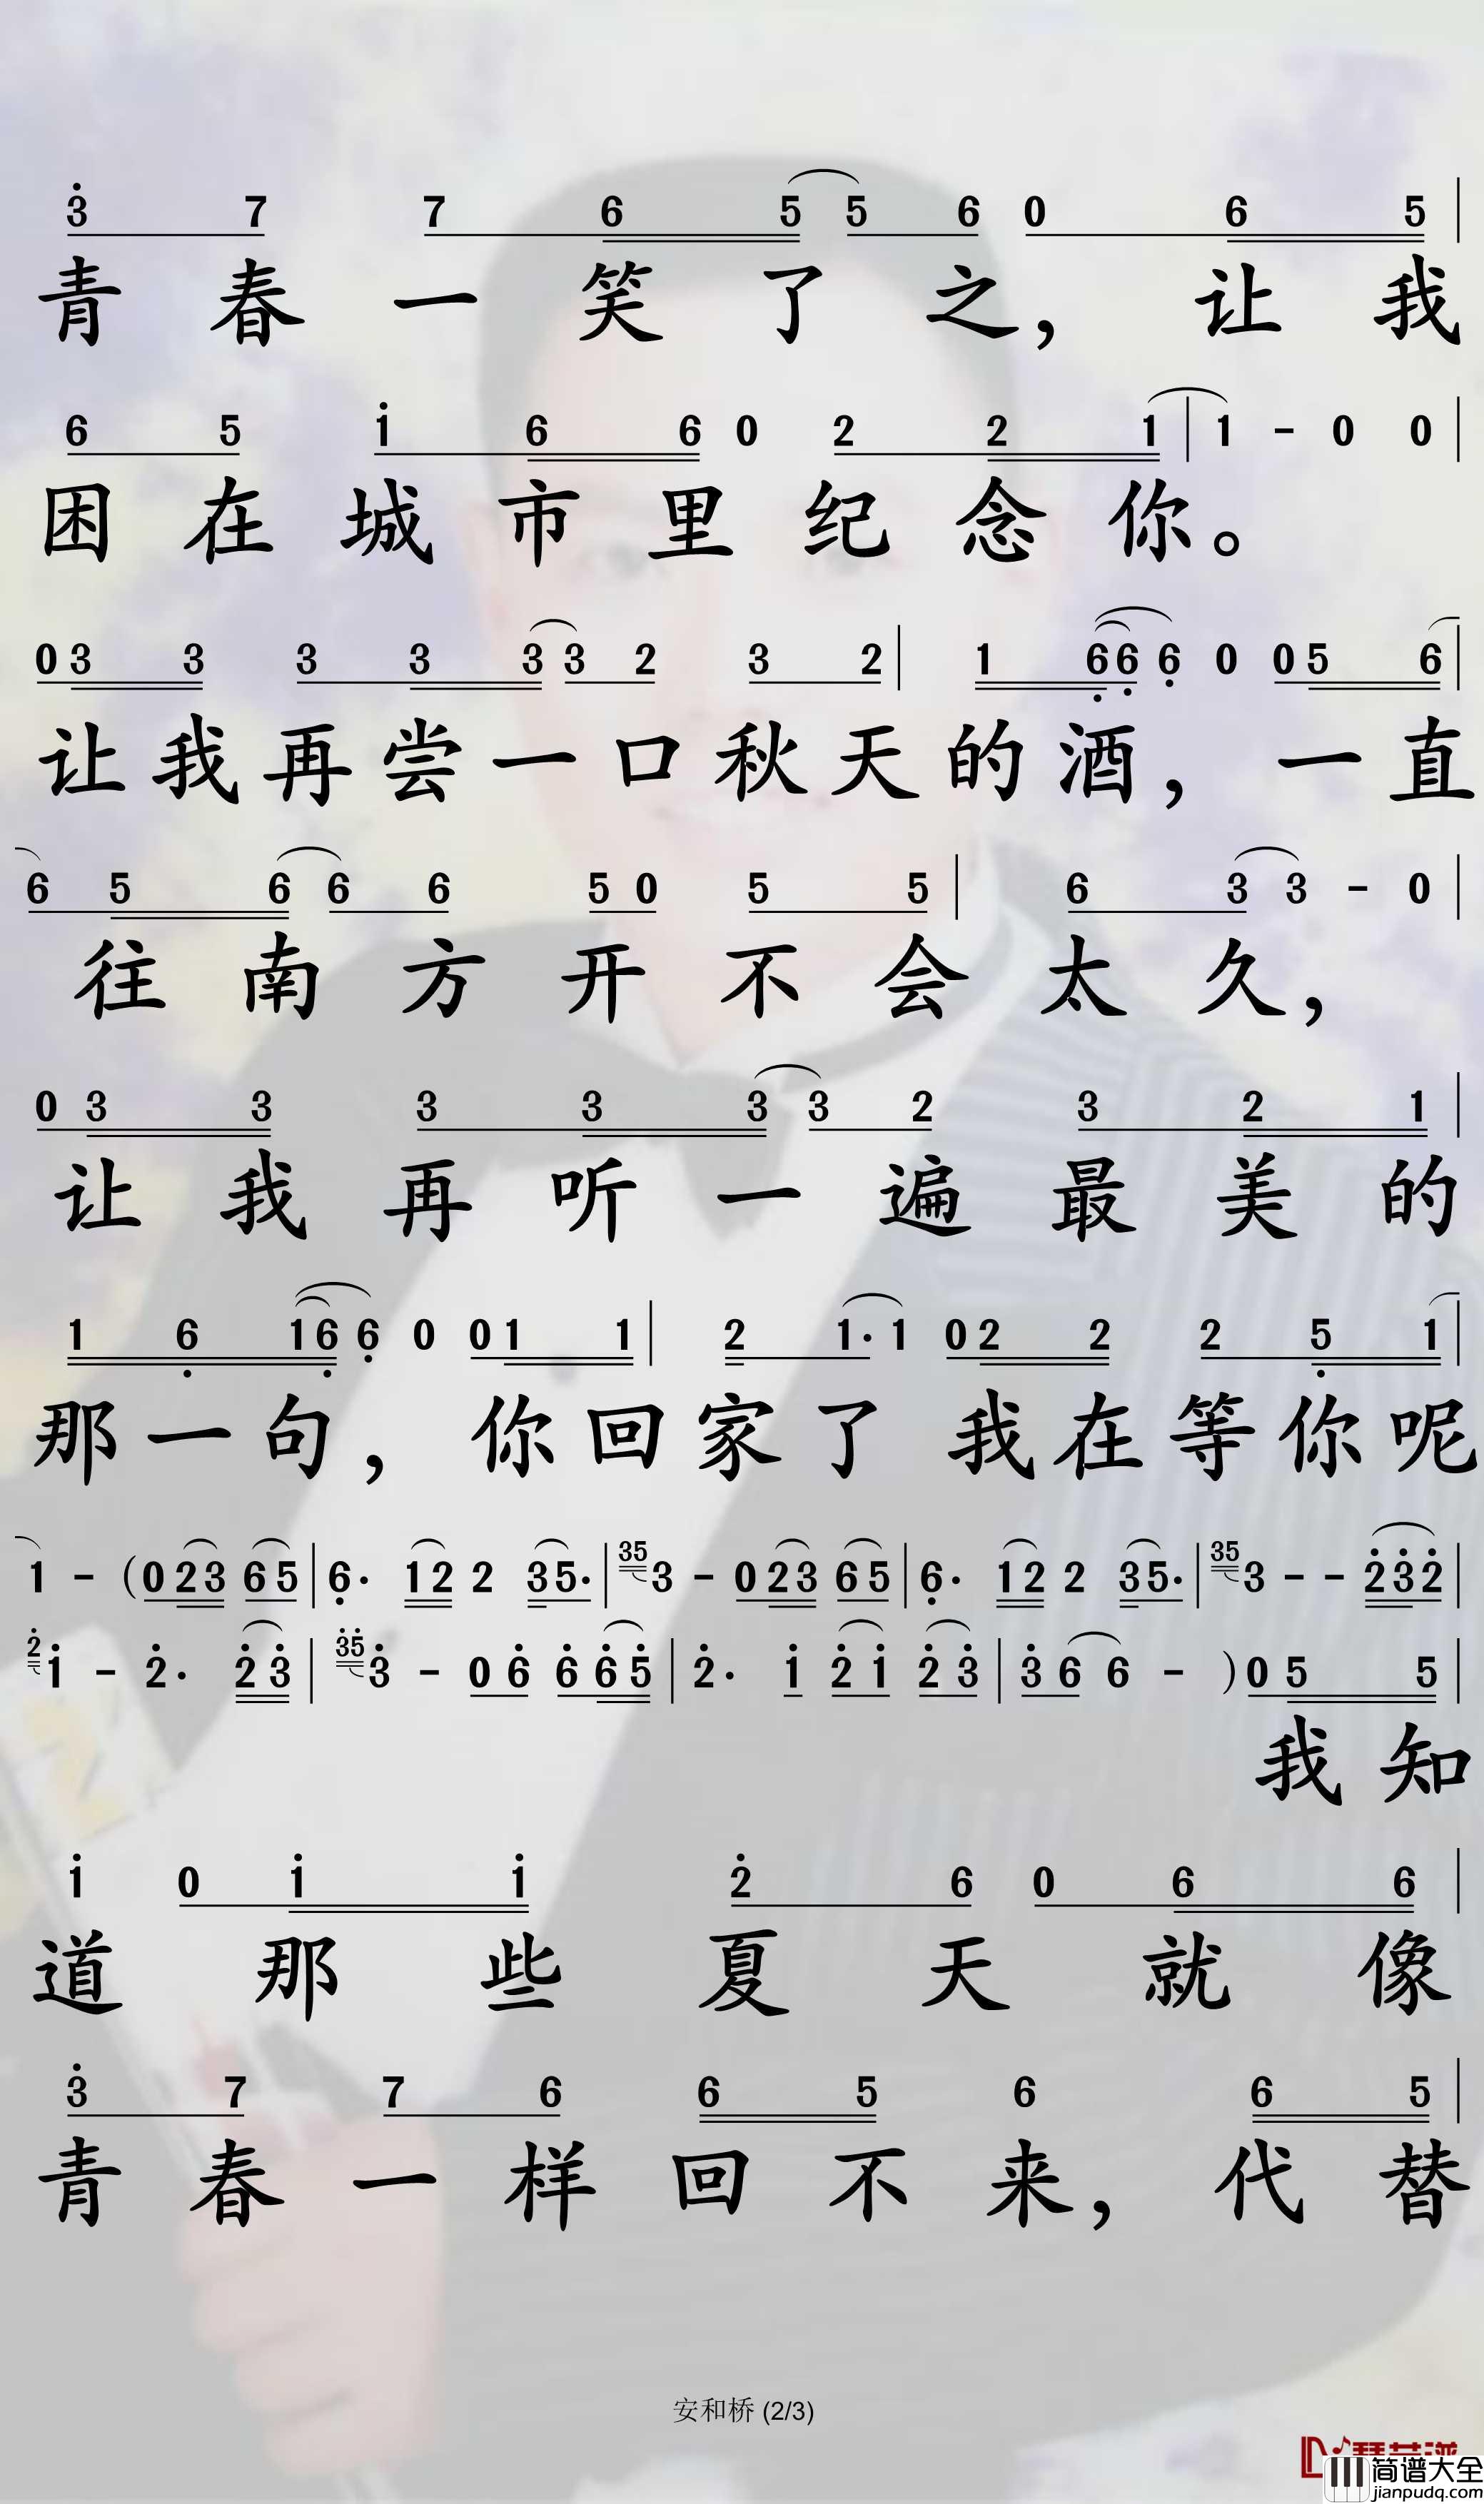 3̇ 7 7 6 5 5 6 0 6 5 |
青 春 一 笑 了 之, 让 我
6 5 1̇ 6 6 0 2 2 1 | 1 - 0 0 |
困 在 城 市 里 纪 念 你。
0 3 3 3 3 3 3 2 3 2 | 1 6̣ 6̣ 6̣ 0 0 5 6 |
让 我 再 尝 一 口 秋 天 的 酒, 一 直
6 5 6 6 6 5 0 5 5 | 6 3 3 - 0 |
往 南 方 开 不 会 太 久,
0 3 3 3 3 3 3 2 3 2 1 |
让 我 再 听 一 遍 最 美 的
1 6̣ 1 6̣ 6̣ 0 0 1 1 | 2 1· 1 0 2 2 2 5̣ 1 |
那 一 句, 你 回 家 了 我 在 等 你 呢
1 - (0 2 3 6 5 | 6̣· 1 2 2 3 5· | 35 3 - 0 2 3 6 5 | 6̣· 1 2 2 3 5· | 35 3 - - 2̇ 3̇ 2̇ |
2̇ 1̇ - 2̇· 2̇ 3̇ | 3̇5̇ 3̇ - 0 6̇ 6̇ 6̇ 5̇ | 2̇· 1̇ 2̇ 1̇ 2̇ 3̇ | 3̇ 6 6 - ) 0 5 5 |
我 知
1̇ 0 1̇ 1̇ 2̇ 6 0 6 6 |
道 那 些 夏 天 就 像
3̇ 7 7 6 6 5 6 6 5 |
青 春 一 样 回 不 来, 代 替
安和桥 (2/3)
简谱大全
jianpudq.com